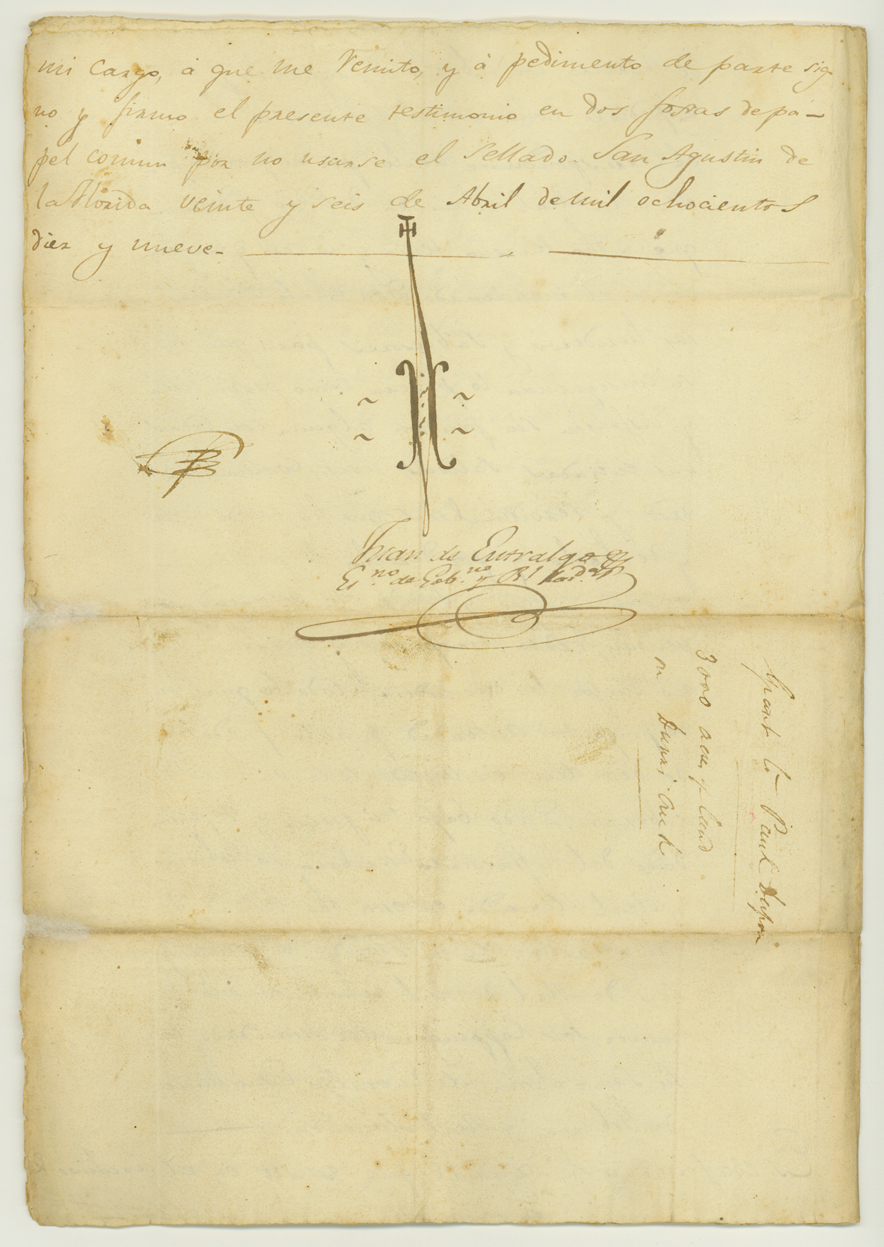 mi cargo, á que me remito, y á pedimento de parte sig
no y firmo el presente testimonio en dos foxas de pa-
pel comun por no usarse el Sellado. San Agustin de
la Florida veinte y seis de Abril de mil ochocientos
diez y nueve.
Juan de Entralgo
Esno. de Gobno. y Rl Hacda.
Grant to Paul Dupon
3000 acres of land
on Dunn's Creek